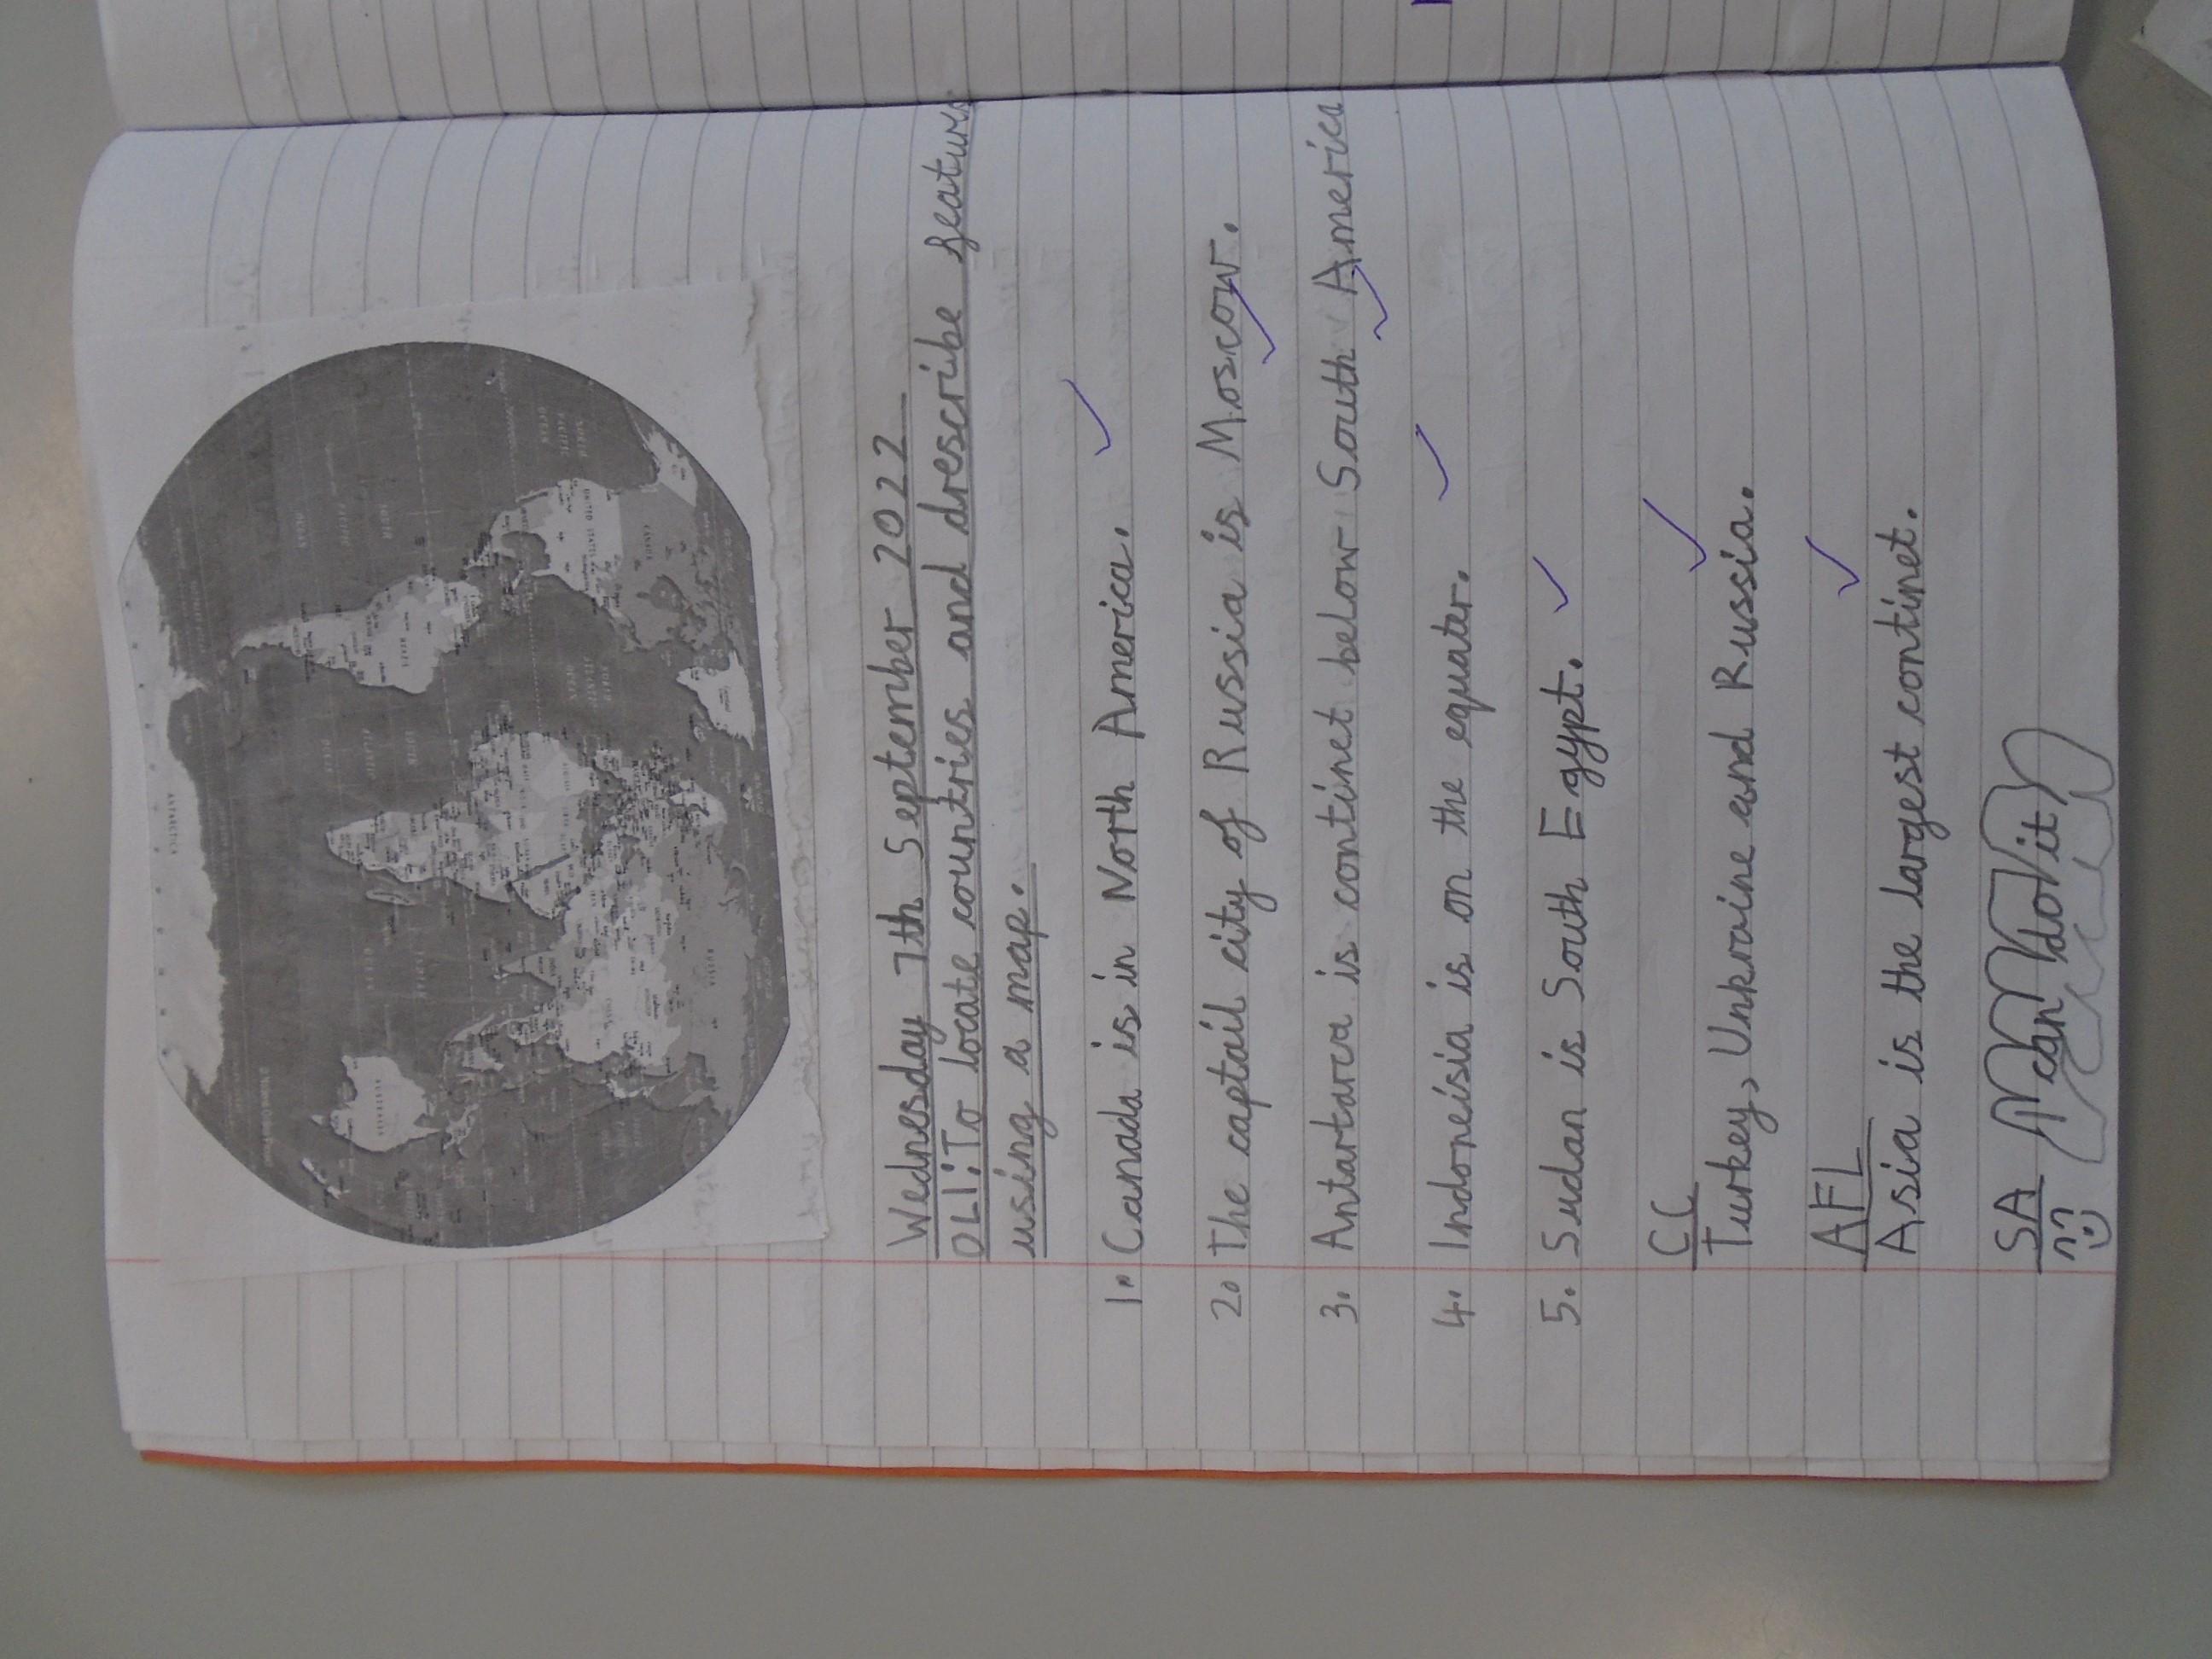 Wednesday 7th September 2022
OLI: To locate countries and drescribe features
using a map.
1. Canada is in North America.
2. The captail city of Russia is Moscow.
3. Antartarca is continet below South America
4. Indoneisia is on the equater.
5. Sudan is South Egypt.
CC
Turkey, Unkraine and Russia.
AFL
Asia is the largest continet.
SA
I can do it